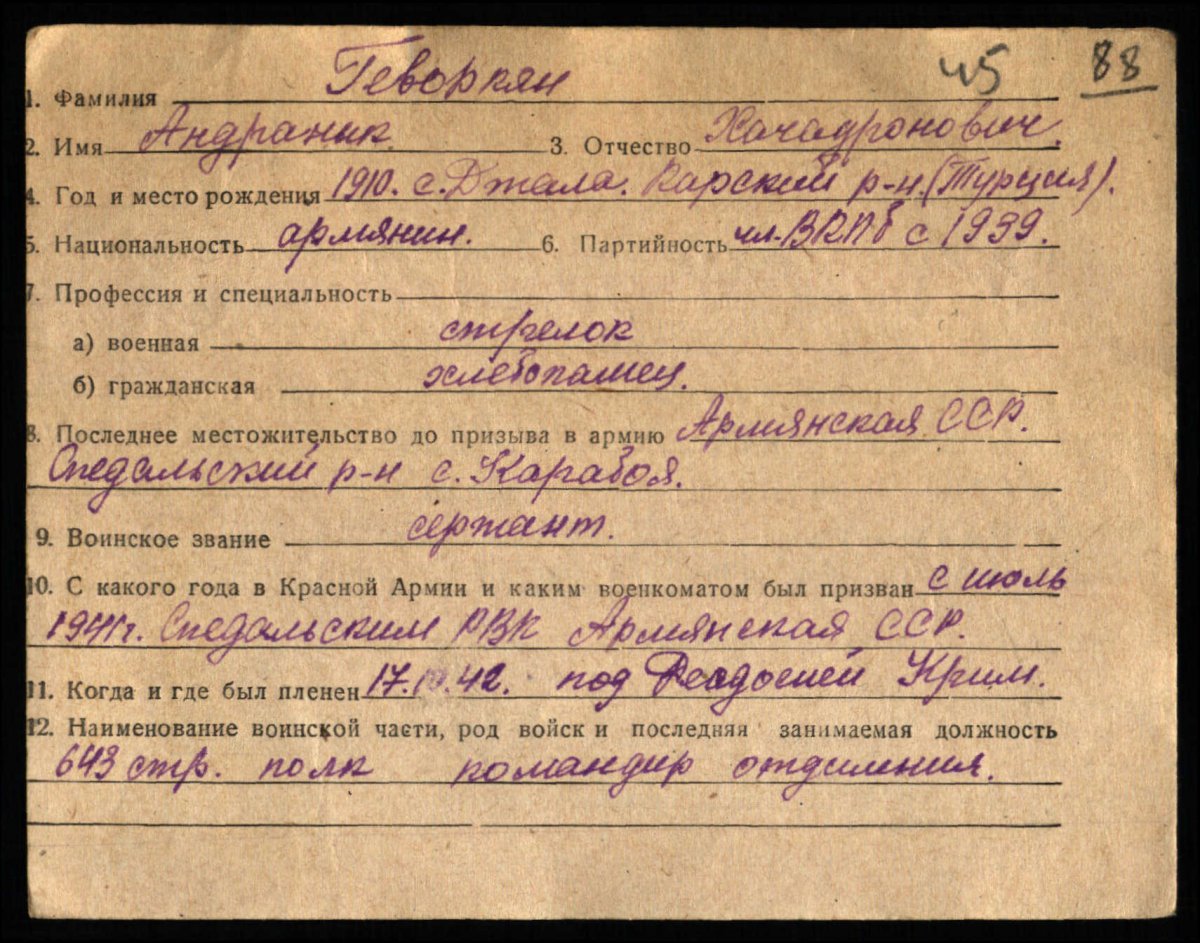 45 88
1. Фамилия Геворкян
2. Имя Андраник. 3. Отчество Хачадронович.
4. Год и место рождения 1910. с. Джала. Карский р-н. (Турция).
5. Национальность армянин. 6. Партийность чл. ВКПб с 1939.
7. Профессия и специальность
а) военная стрелок
б) гражданская хлебопашец.
8. Последнее местожительство до призыва в армию Армянская ССР.
Спедальский р-н с. Карабоя.
9. Воинское звание сержант.
10. С какого года в Красной Армии и каким военкоматом был призван с июль
1941г. Спедальским РВК Армянская ССР.
11. Когда и где был пленен 42. под Феодосией Крим.
12. Наименование воинской части, род войск и последняя занимаемая должность
643 стр. полк командир отдиления.